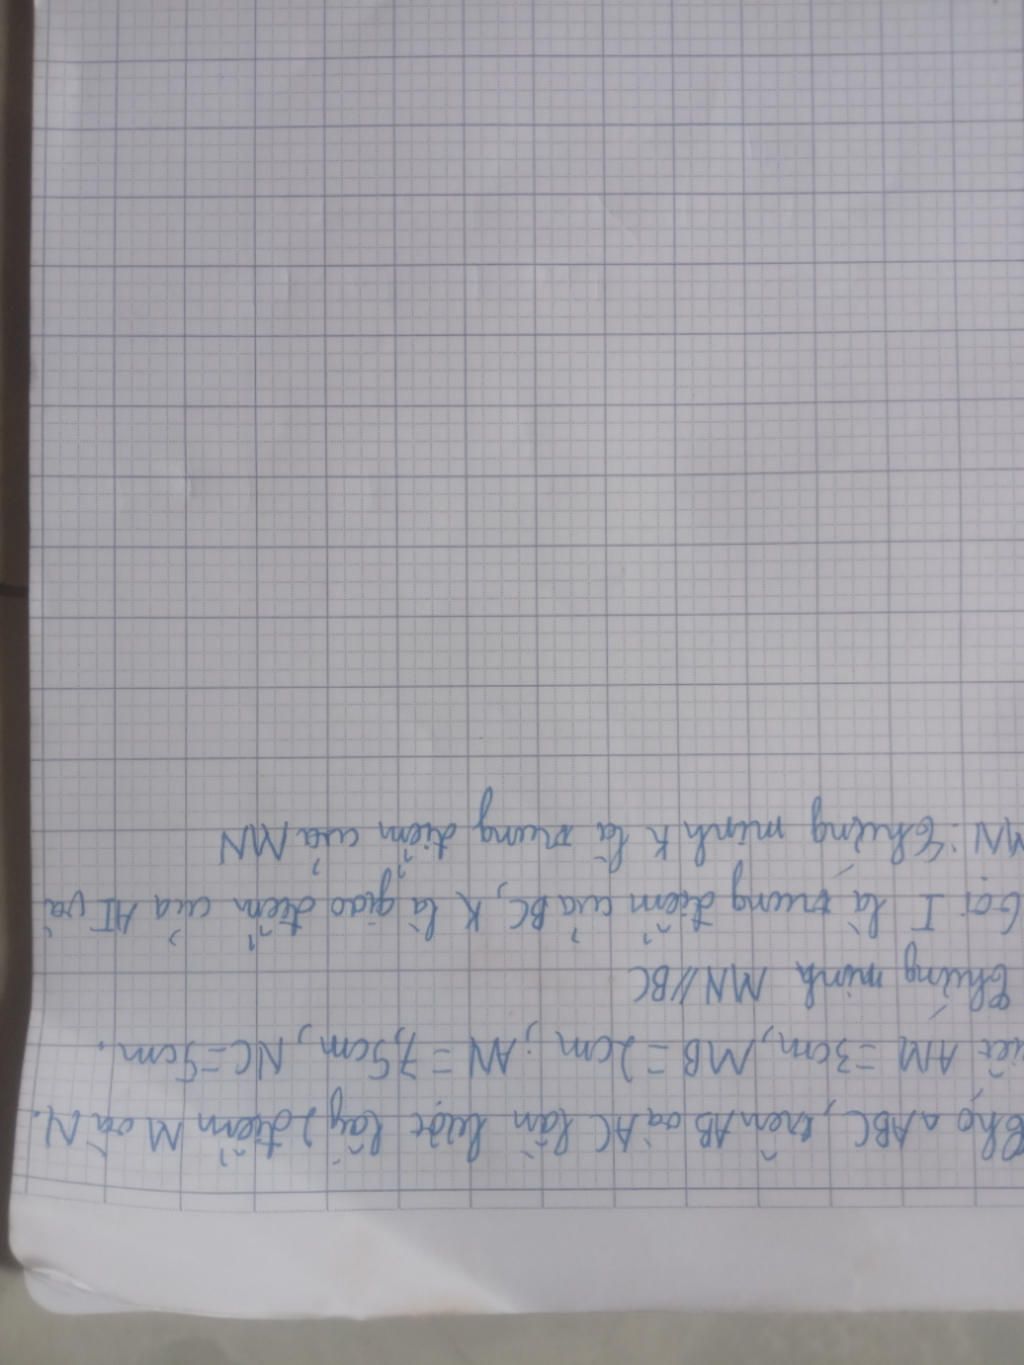 Cho △ABC, trên AB và AC lần lượt lấy 2 điểm M và N.
AM = 3cm, MB = 2cm, AN = 7,5cm, NC = 5cm.
Chứng minh MN//BC
Gọi I là trung điểm của BC, K là giao điểm của AI và
MN. Chứng minh K là trung điểm của MN